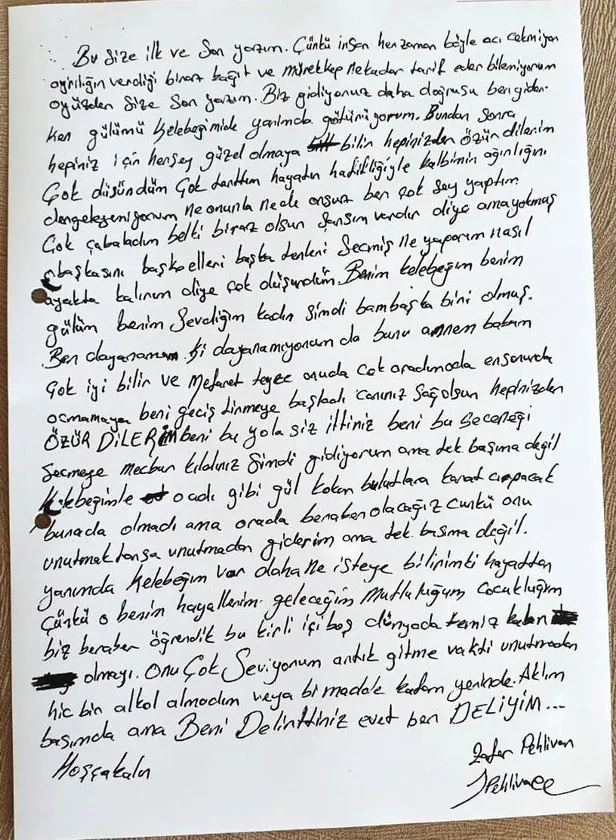 Bu size ilk ve son yazım. Çünkü insan herzaman böyle acı çekmiyor
ayrılığın verdiği biraz kağıt ve mürekkep nekadar tarif eder bilemiyorum
oyüzden size son yazım. Biz gidiyoruz daha doğrusu ben gider
ken gülümü kelebeğimide yanımda götürüyorum. Bundan sonra
hepiniz için herşey güzel olmaya bilir hepinizden özür dilerim
Çok düşündüm çok tarttım hayatın hafifliğiyle kalbimin ağırlığını
dengeleyemiyorum ne onunla nede onsuz ben çok şey yaptım
Çok çabaladım belki biraz olsun şansım vardır diye ama yokmuş
başkasını başka elleri başka tenleri seçmiş ne yaparım nasıl
ayakta kalırım diye çok düşündüm. Benim kelebeğim benim
gülüm benim sevdiğim kadın şimdi bambaşka biri olmuş.
Ben dayanamam ki dayanamıyorum da bunu annem babam
çok iyi bilir ve teyze onuda çok aradımada ensonunda
açmamaya beni geçiştirmeye başladı canınız sağolsun hepinizden
ÖZÜR DİLERİM beni bu yola siz ittiniz beni bu seçeneği
Seçmeye mecbur kıldınız Şimdi gidiyorum ama tek başıma değil
Kelebeğimle o adı gibi gül kokan bulutlara kanat çırpacak
burada olmadı ama orada beraber olacağız çünkü onu
unutmaktansa unutmadan giderim ama tek başıma değil.
yanımda Kelebeğim var daha ne isteye bilirimki hayattan
Çünkü o benim hayallerim geleceğim mutluluğum çocukluğum
biz beraber öğrendik bu kirli içi boş dünyada temiz
olmayı. Onu Çok Seviyorum artık gitme vakti unutmadan
hiç bir alkol almadım veya bi madde kafam yerinde. Aklım
başımda ama Beni Delirttiniz evet ben DELİYİM...
Hoşçakalın
Zafer Pehlivan